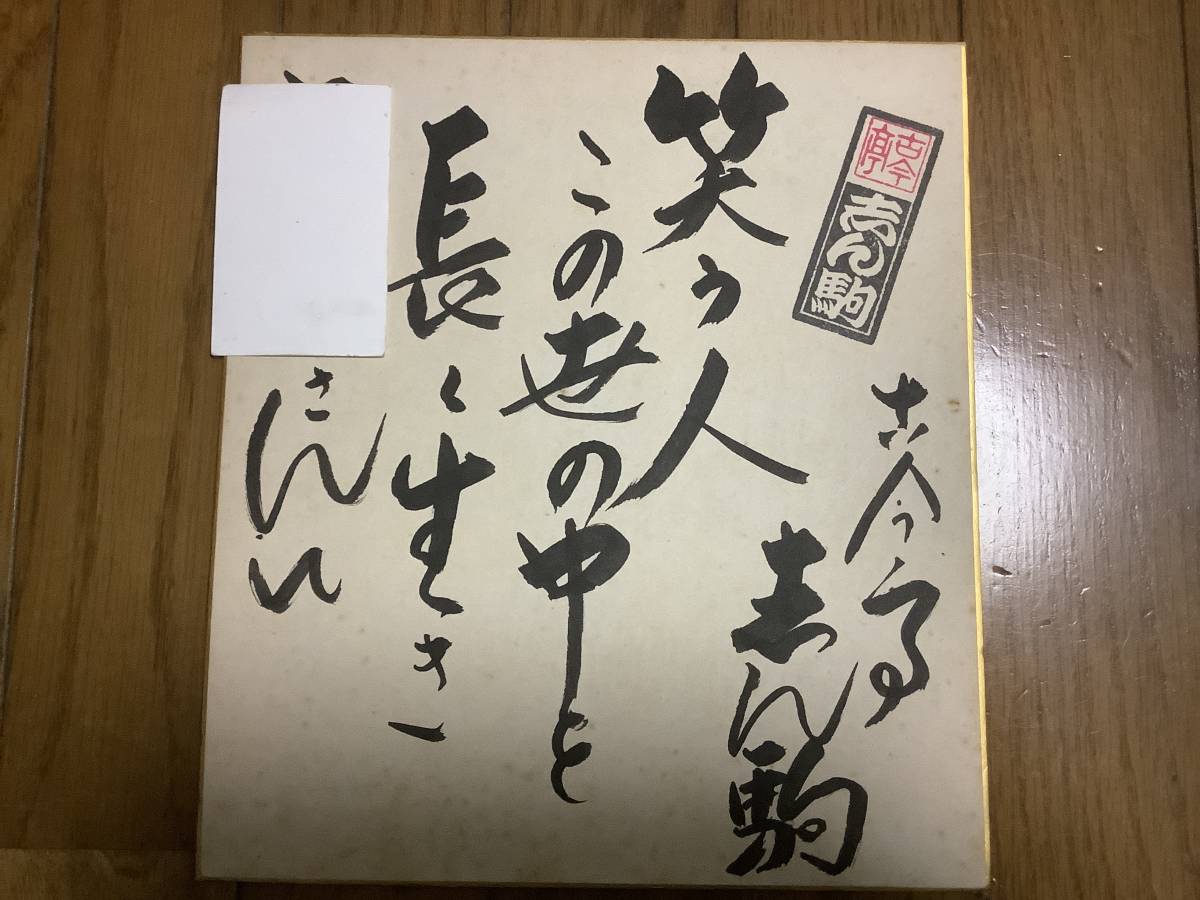 古今亭
志ん駒
古今亭
志ん駒
笑う人
この世の中を
長く生き
さん江